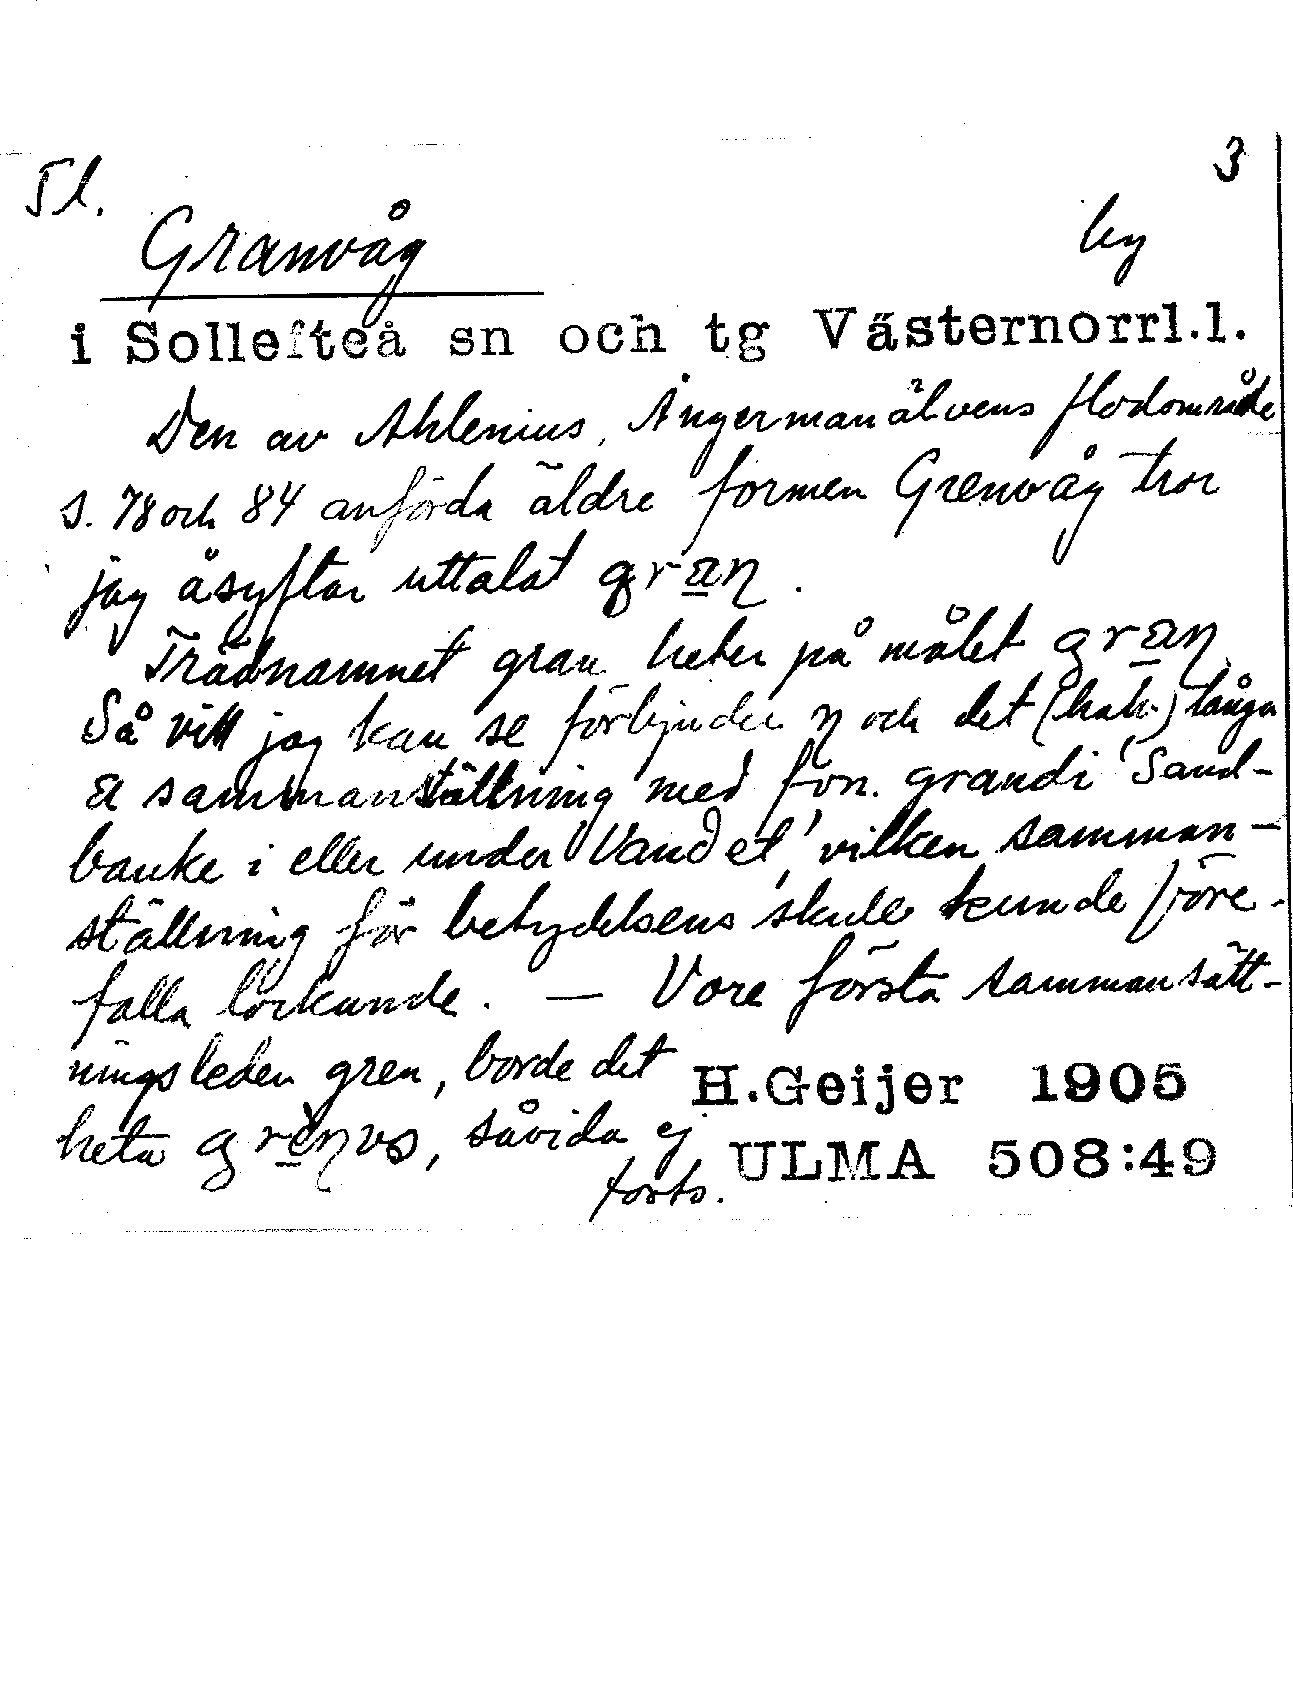 Tl. 3
Granvåg by
i Sollefteå sn och tg Västernorrl.l.
Den av Ahlenius, Ångermanälvens flodområde
s. 78 och 84 anförda äldre formen Grenvåg tror
jag åsyftar uttalet gran.
Trädnamnet gran heter på målet gran
Så vitt jag kan se förbjuder n och det (halv) långa
a sammanställning med fvn. grandi 'Sand-
banke i eller under Vandet', vilken samman-
ställning för betydelsens skull kunde före-
falla lockande. — Vore första sammansätt-
ningsleden gren, borde det H.Geijer 1905
heta såvida ej ULMA 508:49
forts.